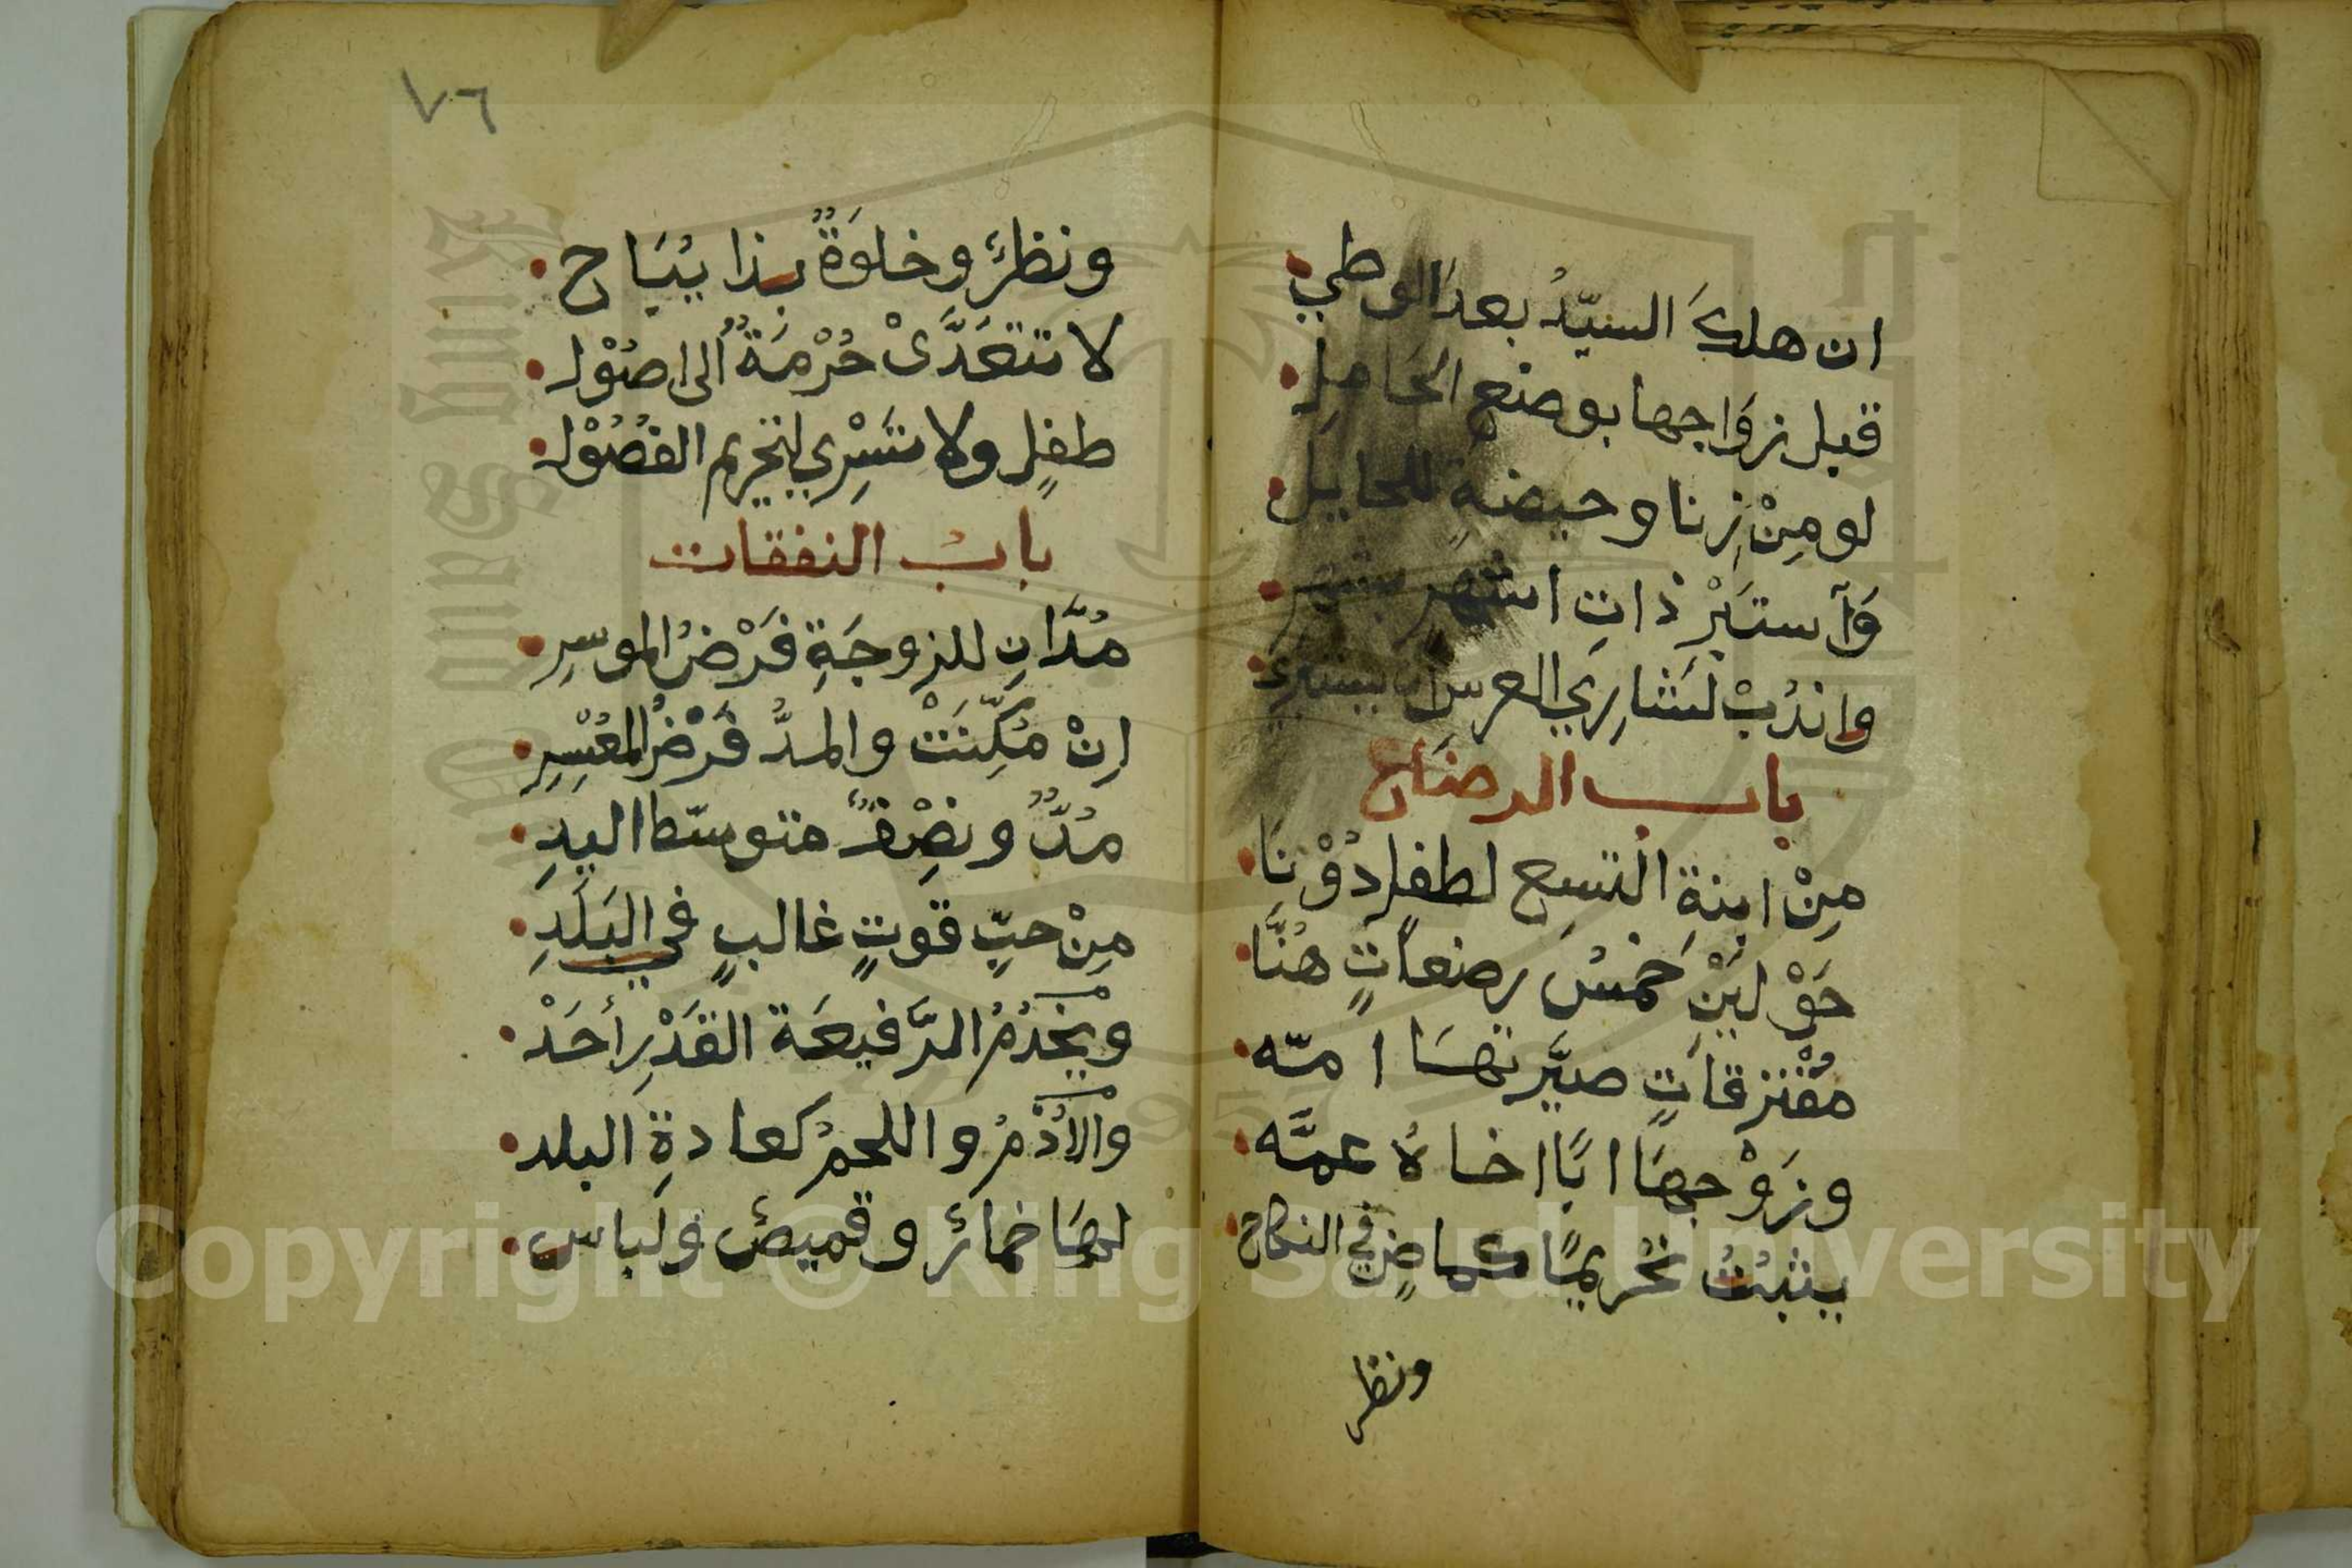 ان هلكَ السيّدُ بعدَ الوطيِ
قبل زوَاجها بوضع الحَاملِ
لو مِنْ زِنا وحيضةٍ للحايل
وَٱستبْرِ ذاتِ اشهرٍ بشهرِ
واندُبْ لشَارِي العرسِ ان يستبري
باب الرضاع
مِنْ ابنةِ التسِع لطفل دُوْنَا
حَوْلينْ خمْسُ رضعاتٍ هنَّا
مُفْترقاتٍ صيَّرتهَا امّه
وزَوْجهَا ابًا اخاهُ عمَّه
يثبُتُ تحْريمًا كماضٍ في النكاح
ونظر
٧٦
ونظرٌ وخلوَةٌ بذا يُبَاح
لا تتعَدَّىْ حُرْمَةٌ الى اصُوْل
طفلٍ ولا تسْرِي لتحْريم الفصُوْل
بابُ النفقات
مُدَّانِ للزوجَةِ فَرْضُ الموسِرِ
اِنْ مُكِّنَتْ والمدُّ فَرْضُ المعُسِرِ
مُدٌّ ونصِْفٌ متوسّط اليدِ
مِنْ حبّ قوتٍ غالبٍ في البَلَدِ
ويخْدُمُ الرَّفيعَة القَدْرِ أحَدْ
والاُدْمُ واللحمُ كعادةِ البلد
لهَا خمارٌ وقميصٌ ولباس
Copyright © King Saud University
King Saud
1957